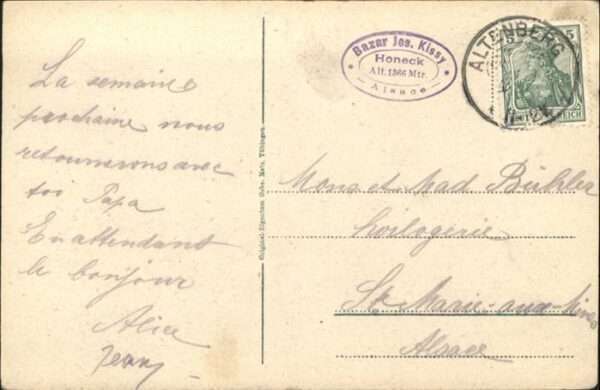 La semaine
prochaine nous
retournerons avec
toi Papa
En attendant
le bonjour
Alice
Jenny
Original-Eigentum Gebr. Metz, Tübingen.
Bazar Jos. Kissy
Honeck
Alt. 1366 Mtr.
Alsace
ALTENBERG
5
REICH
Mons et Mad Bühler
horlogerie
Ste Marie-aux-Mines
Alsace